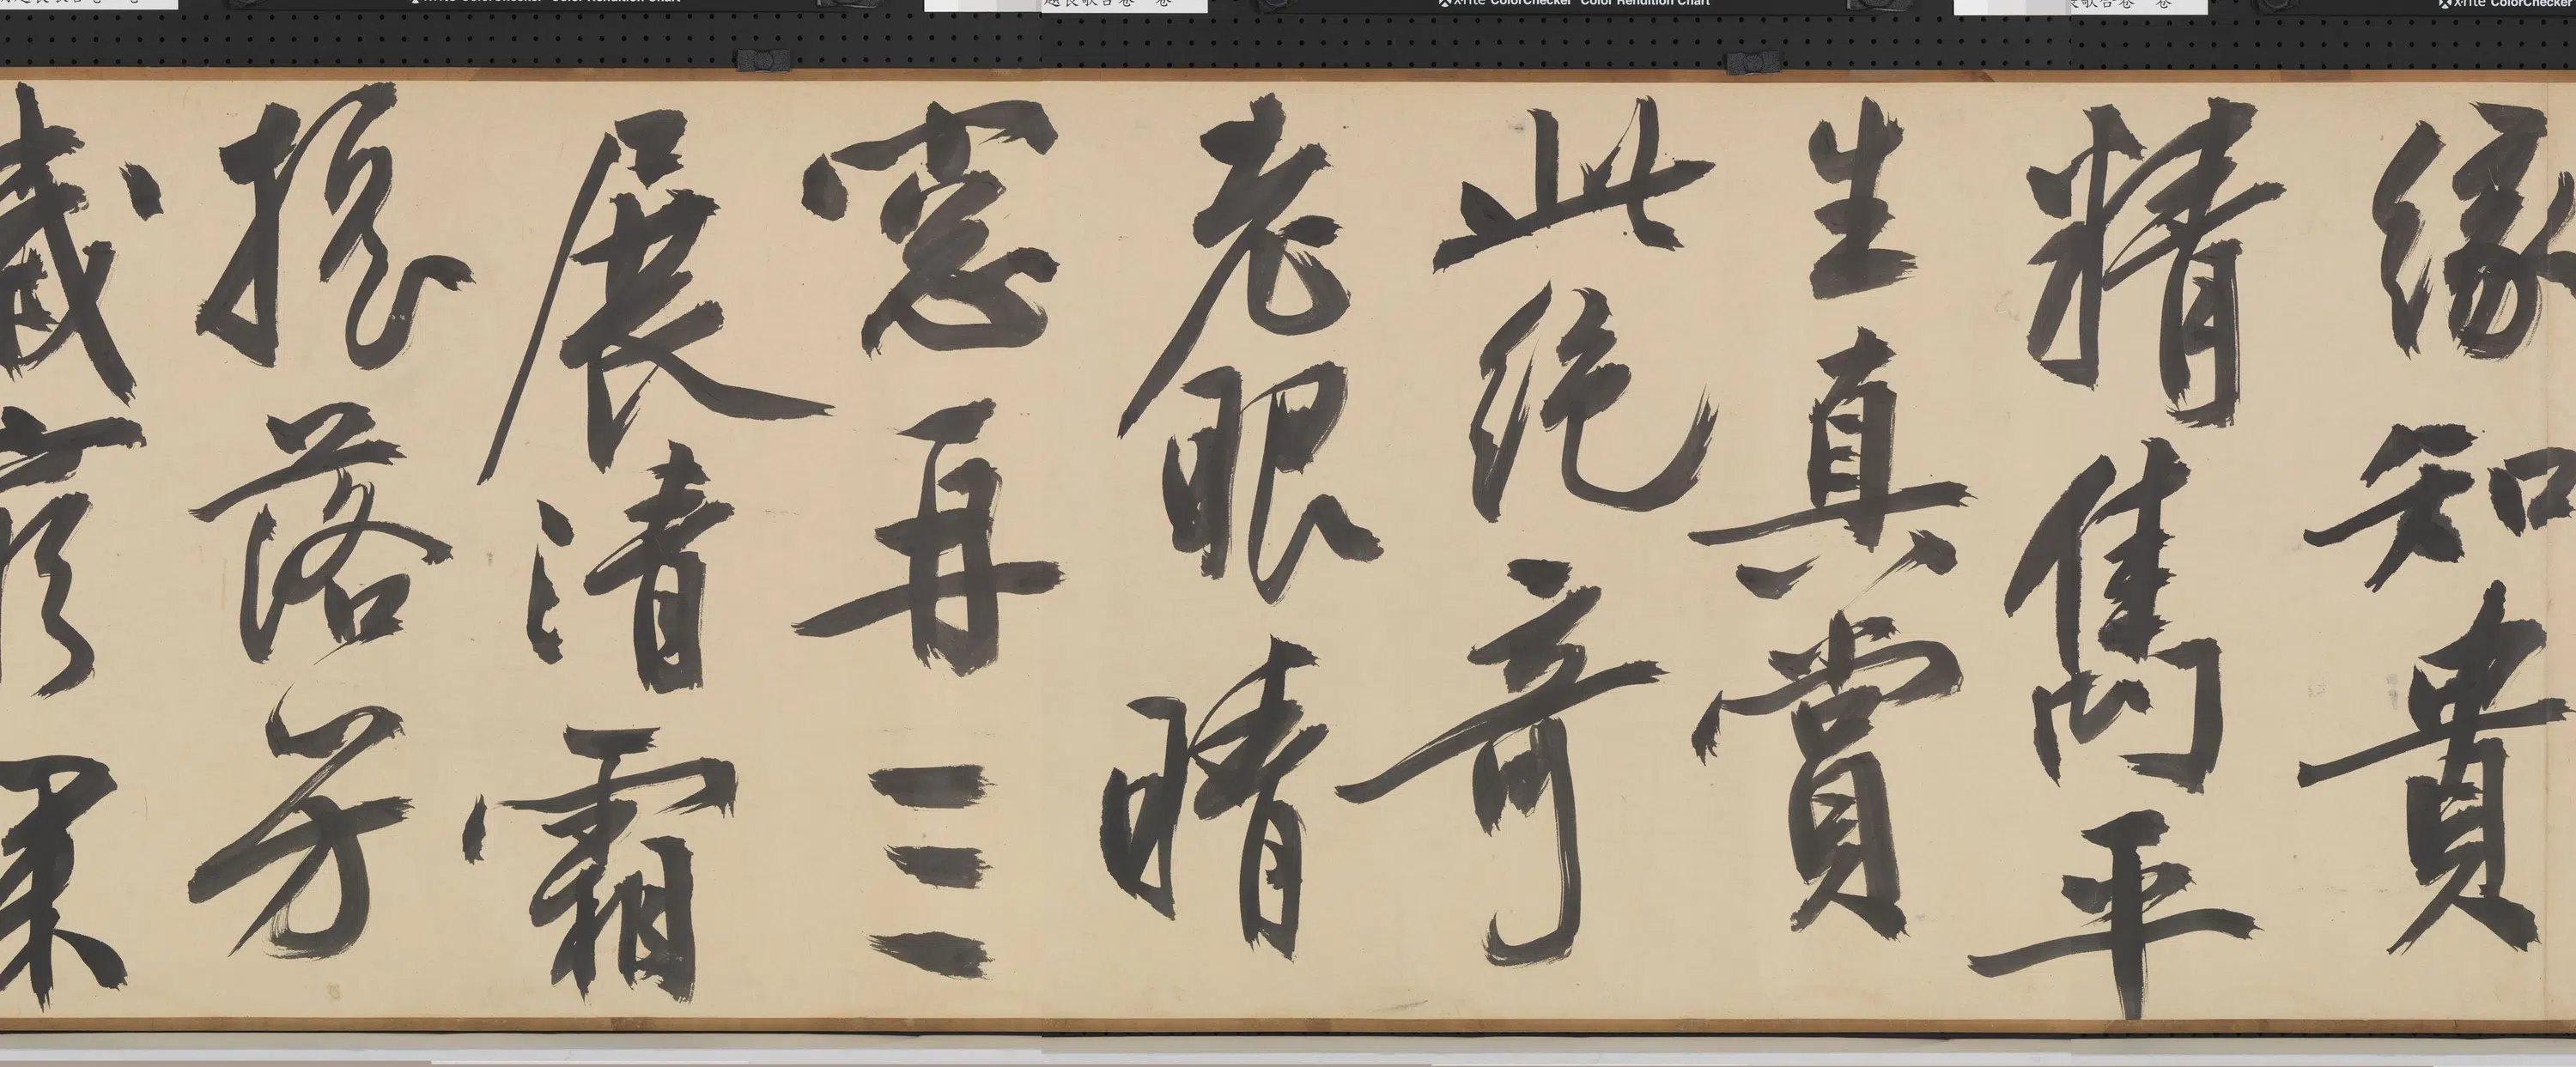 緣知貴
精雋平
生真賞
此絕奇
老眼晴
窓再三
展清霜
搖落芳
歲
x-rite ColorChecker Color Rendition Chart
x-rite ColorChecker Color Rendition Chart
x-rite ColorChecker